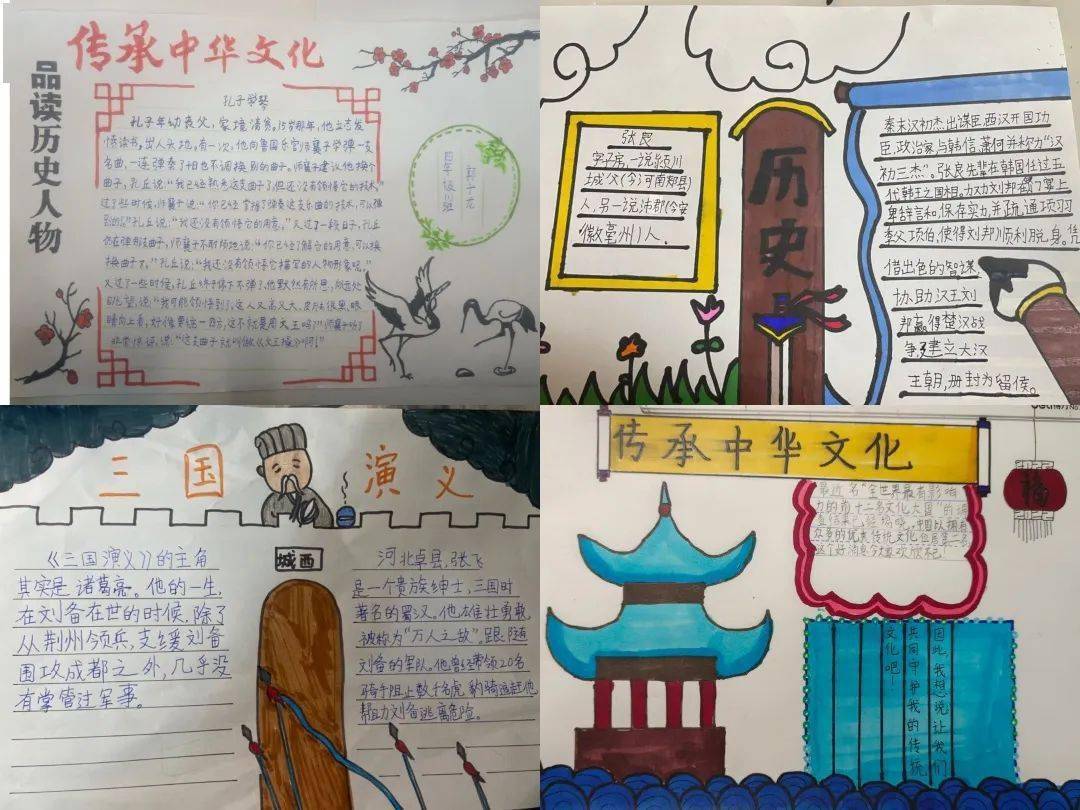 传承中华文化
品读历史人物
孔子学琴
孔子年幼丧父,家境清贫。15岁那年,他立志发
愤读书,出人头地。有一次,他向鲁国乐官师襄子学弹一支
名曲,一连弹奏了十日也不调换别的曲子。师襄子建议他换个
曲子,孔丘说:“我已经熟悉这支曲子了,但还没有领悟它的技术。”
过了些时候,师襄子说:“你已经掌握了弹奏这支乐曲的技术,可以换
别的了。”孔丘说:“我还没有领悟它的用意。”又过了一段日子,孔丘
仍在弹那支曲子,师襄子不耐烦地说:“你已经了解它的用意,可以换
换曲子了。”孔丘说:“我还没有领悟它描写的人物形象呢。”
又过了一些时候,孔丘终于停下不弹了,他默然有所思,向远处
眺望,说:“我可能领悟到了,这人又高又大,皮肤很黑,眼
睛向上看,好像要统一四方,这不就是周文王吗?”师襄子听了
说:“这支曲子就叫做《文王操》啊!”
四年级
张良
字子房,一说颍川
城父(今)河南郏县)
人,另一说沛郡(今安
徽亳州)人。
历史
秦末汉初杰出谋臣,西汉开国功
臣,政治家与韩信,萧何并称为“汉
初三杰”。张良先辈在韩国任过五
代韩王之国相。力劝刘邦
卑辞言和,保存实力,并疏通项羽
季父项伯,使得刘邦顺利脱身。凭
借出色的智谋,
协助汉王刘
邦赢得楚汉战
争,建立大汉
王朝,册封为留侯。
三国演义
《三国演义》的主角
其实是诸葛亮。他的一生,
在刘备在世的时候,除了
从荆州领兵,支缓刘备
围攻成都之外,几乎没
有掌管过军事。
城西
河北卓县,张飞
是一个贵族绅士,三国时
著名的蜀汉。他雄壮勇敢,
被称为“万人之敌”。跟随
刘备的军队。他曾经带领20名
骑手阻上数千名虎,豹骑追赶他
帮助刘备逃离危险。
传承中华文化
福
最近一名“全世界最有影响
力的前十二多文化大国”的调
查结果
众多的优秀传统文化位居第二名
这个好消息令
因此,我想说让我们
共同守护我的传统
文化吧!